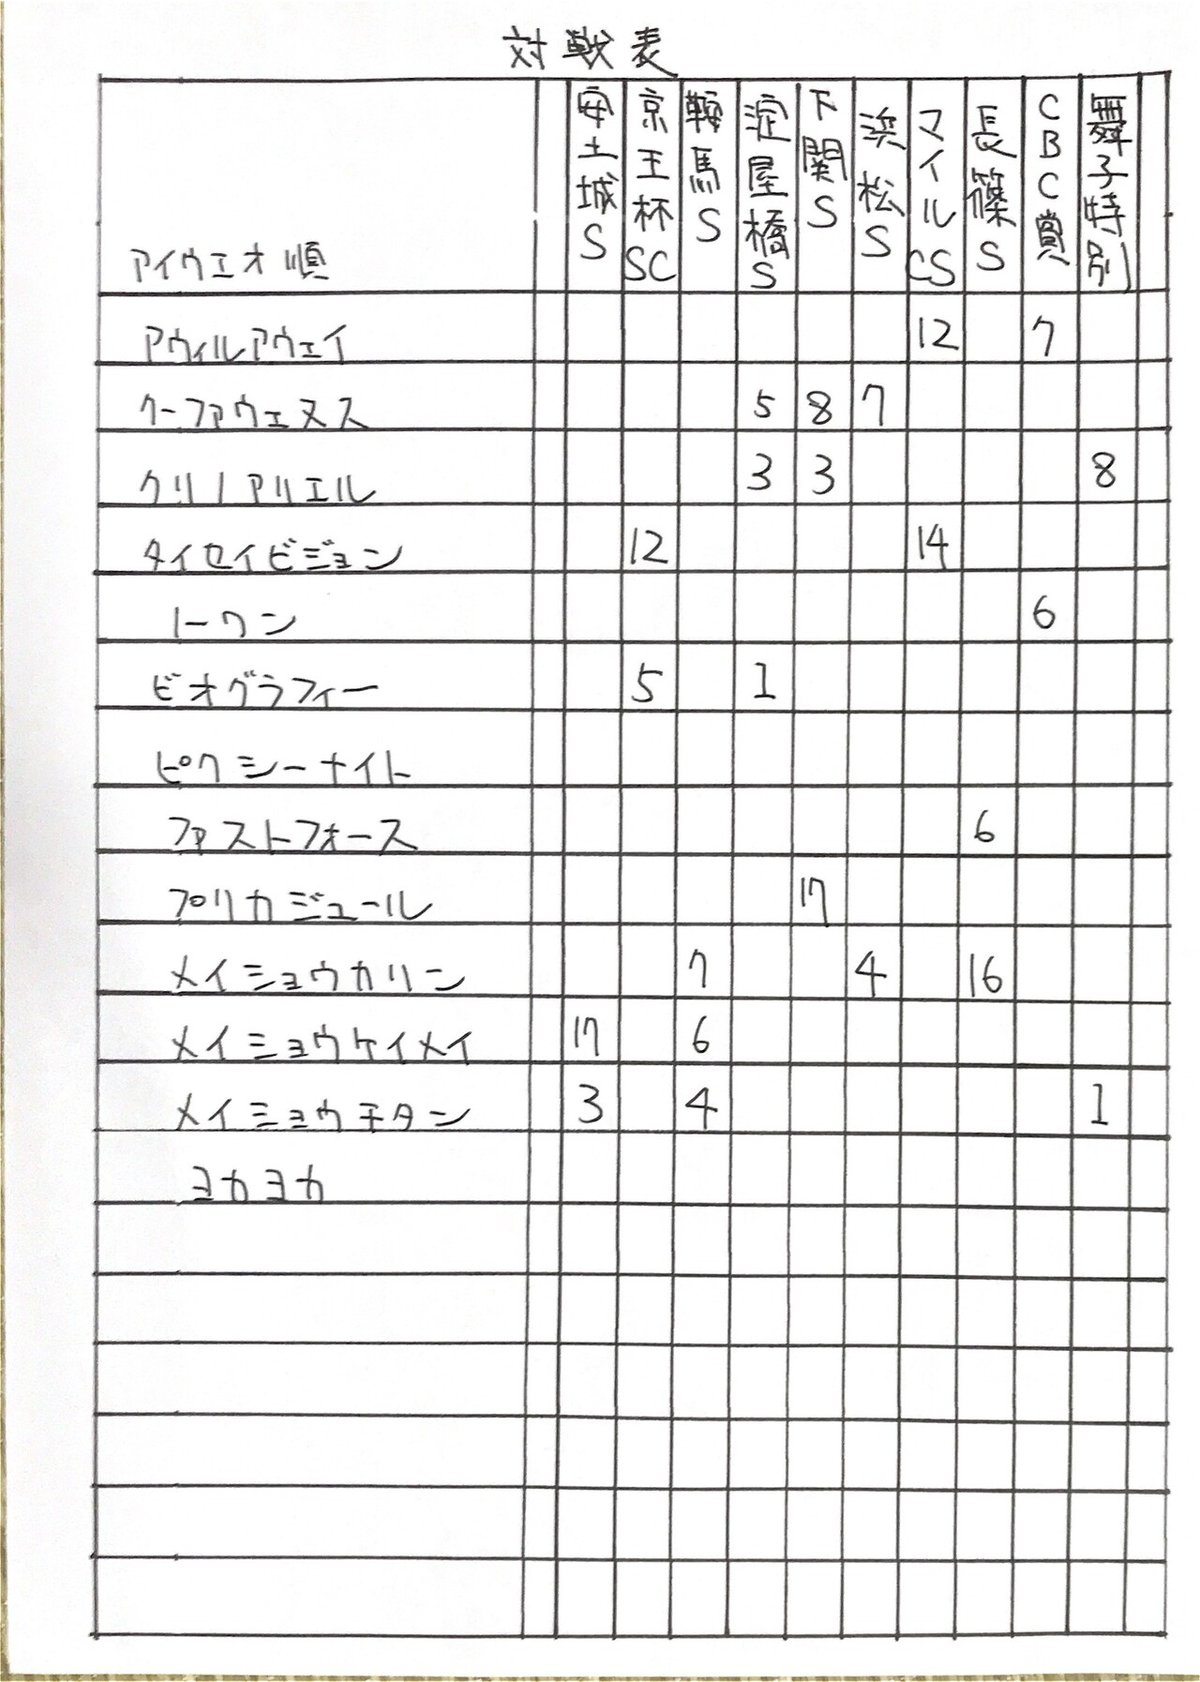 対戦表
アイウエオ順
安土城S
京王杯SC
鞍馬S
淀屋橋S
下関S
浜松S
マイルCS
長篠S
CBC賞
舞子特別
アウィルアウェイ 12 7
クーファウェヌス 5 8 7
クリノアリエル 3 3 8
タイセイビジョン 12 14
トーワン 6
ビオグラフィー 5 1
ピクシーナイト
ファストフォース 6
プリカジュール 17
メイショウカリン 7 4 16
メイショウケイメイ 17 6
メイショウチタン 3 4 1
ヨカヨカ